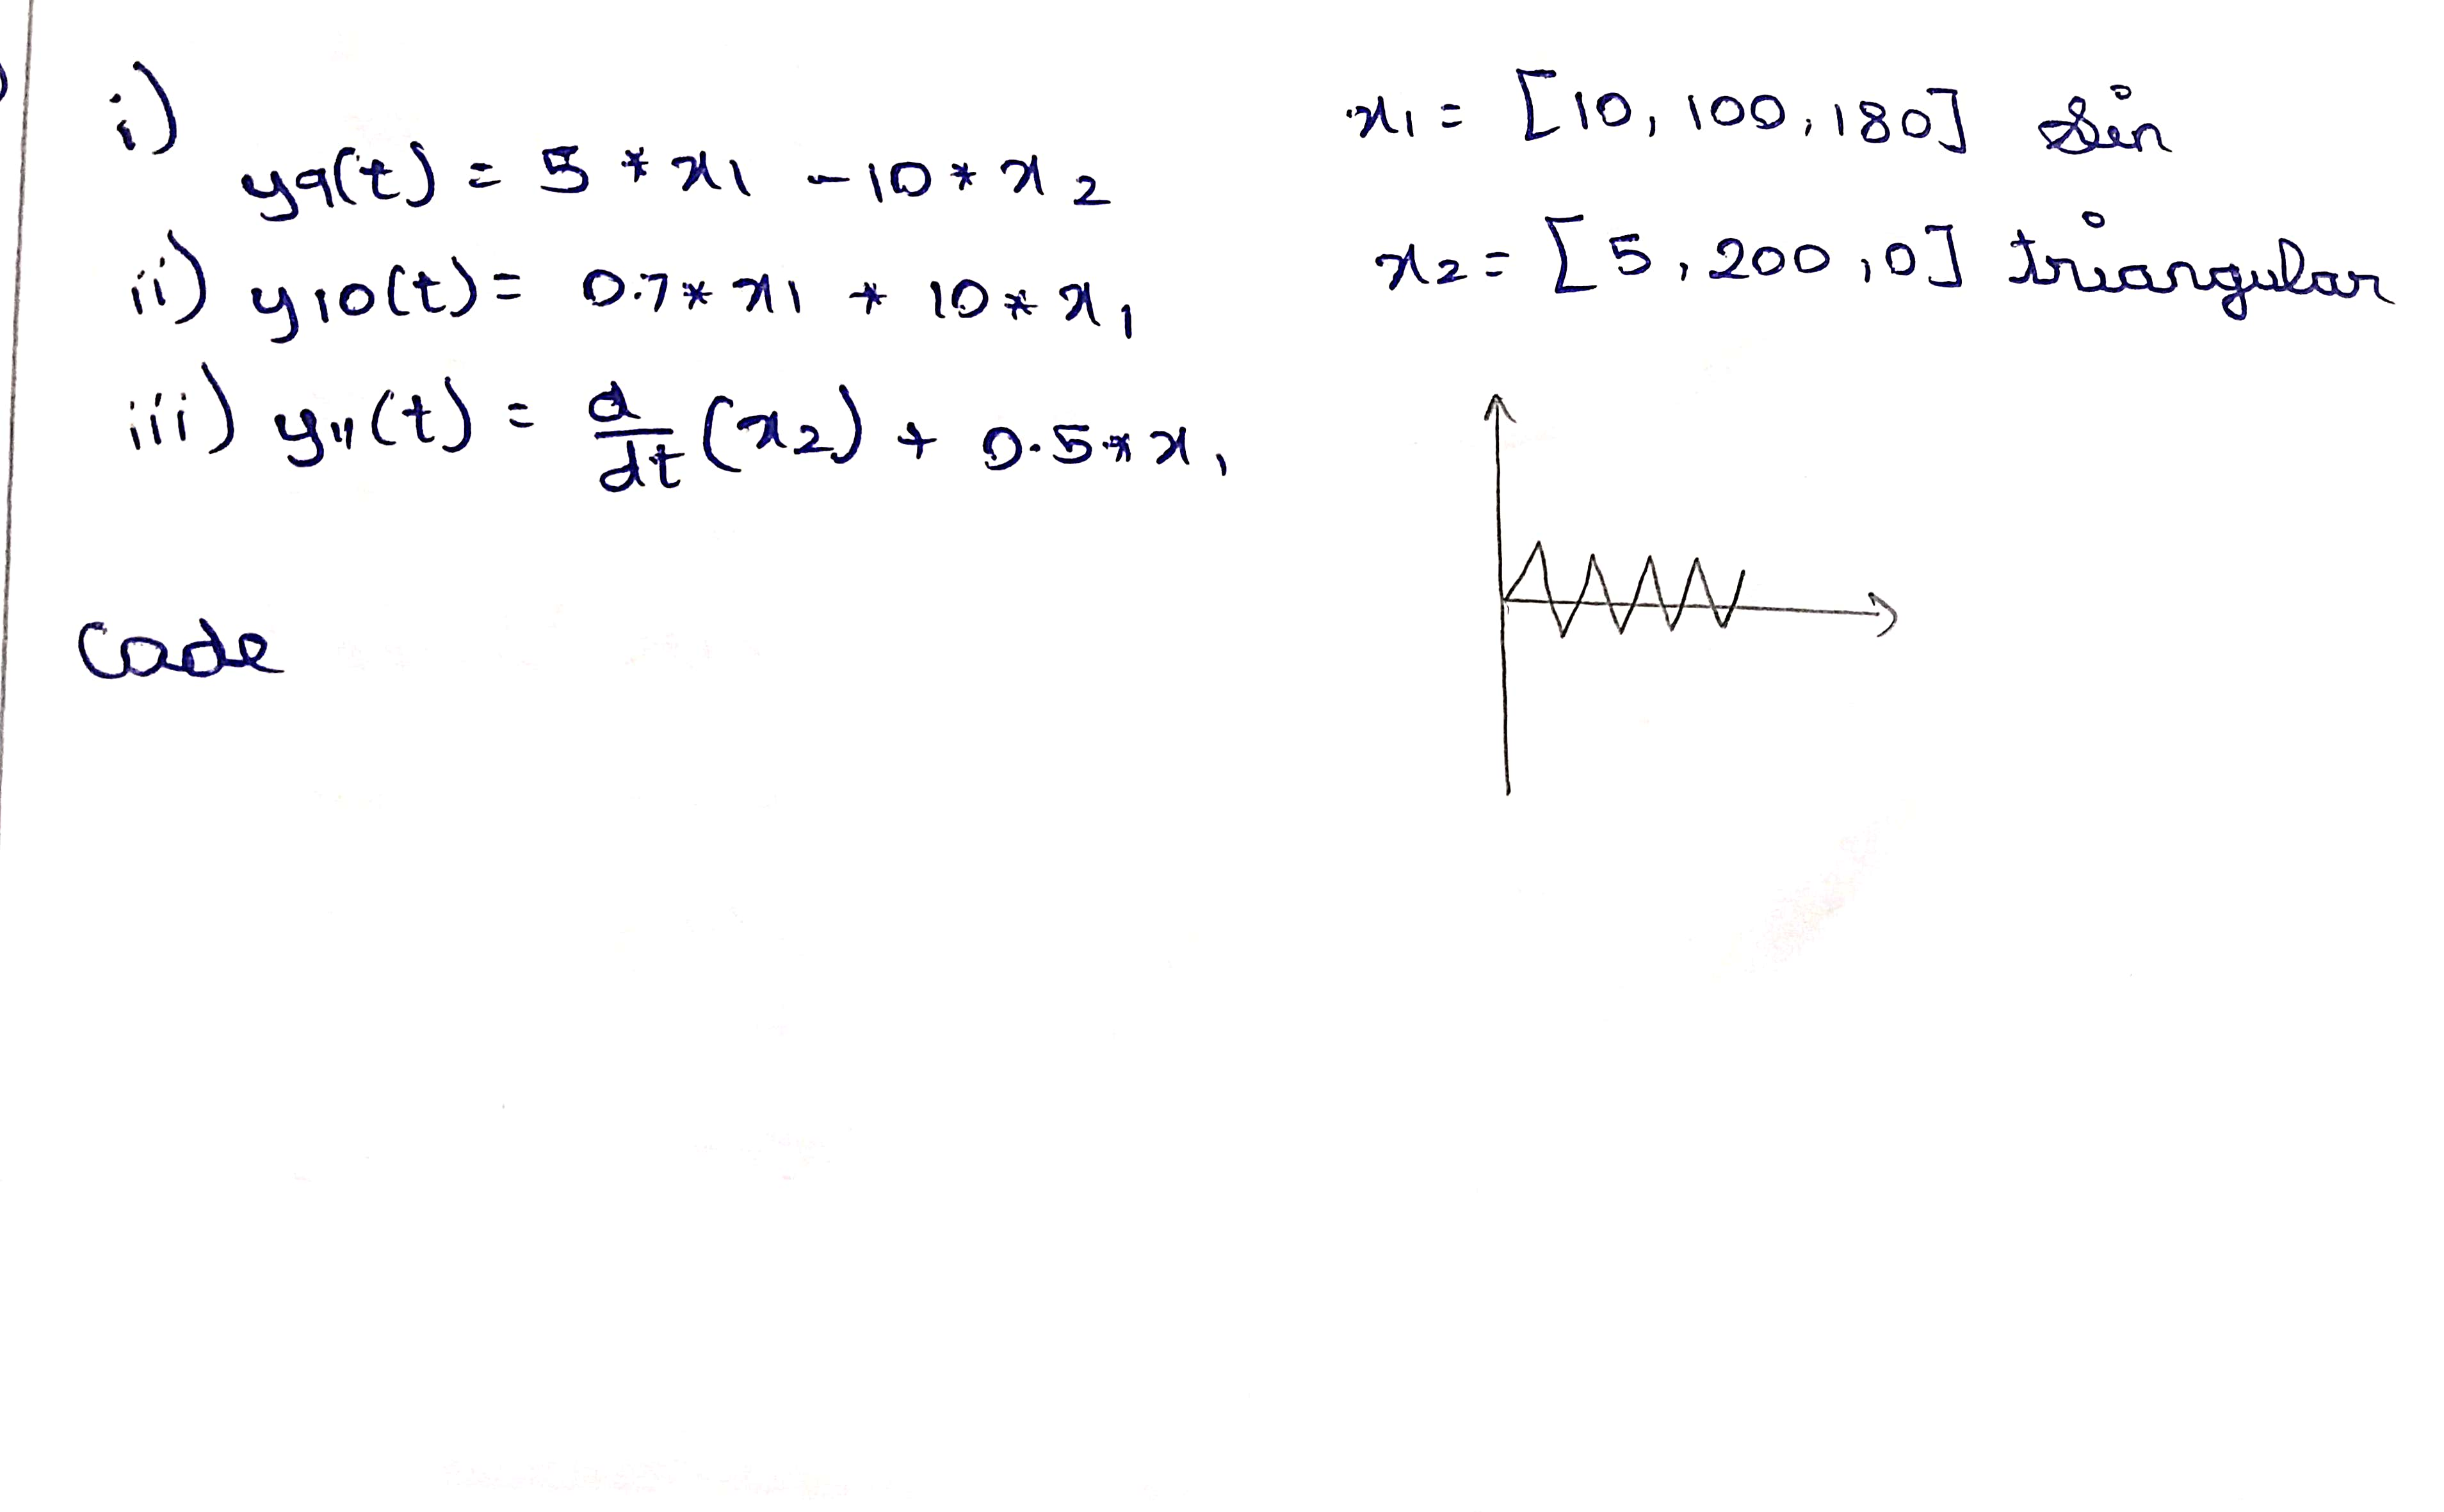 i)
y9(t) = 5 * x1 - 10 * x2
ii) y10(t) = 0.7 * x1 * 10 * x1
iii) y11(t) = d/dt (x2) + 0.5 * x1
x1 = [10, 100, 180] sin
x2 = [5, 200, 0] triangular
Code